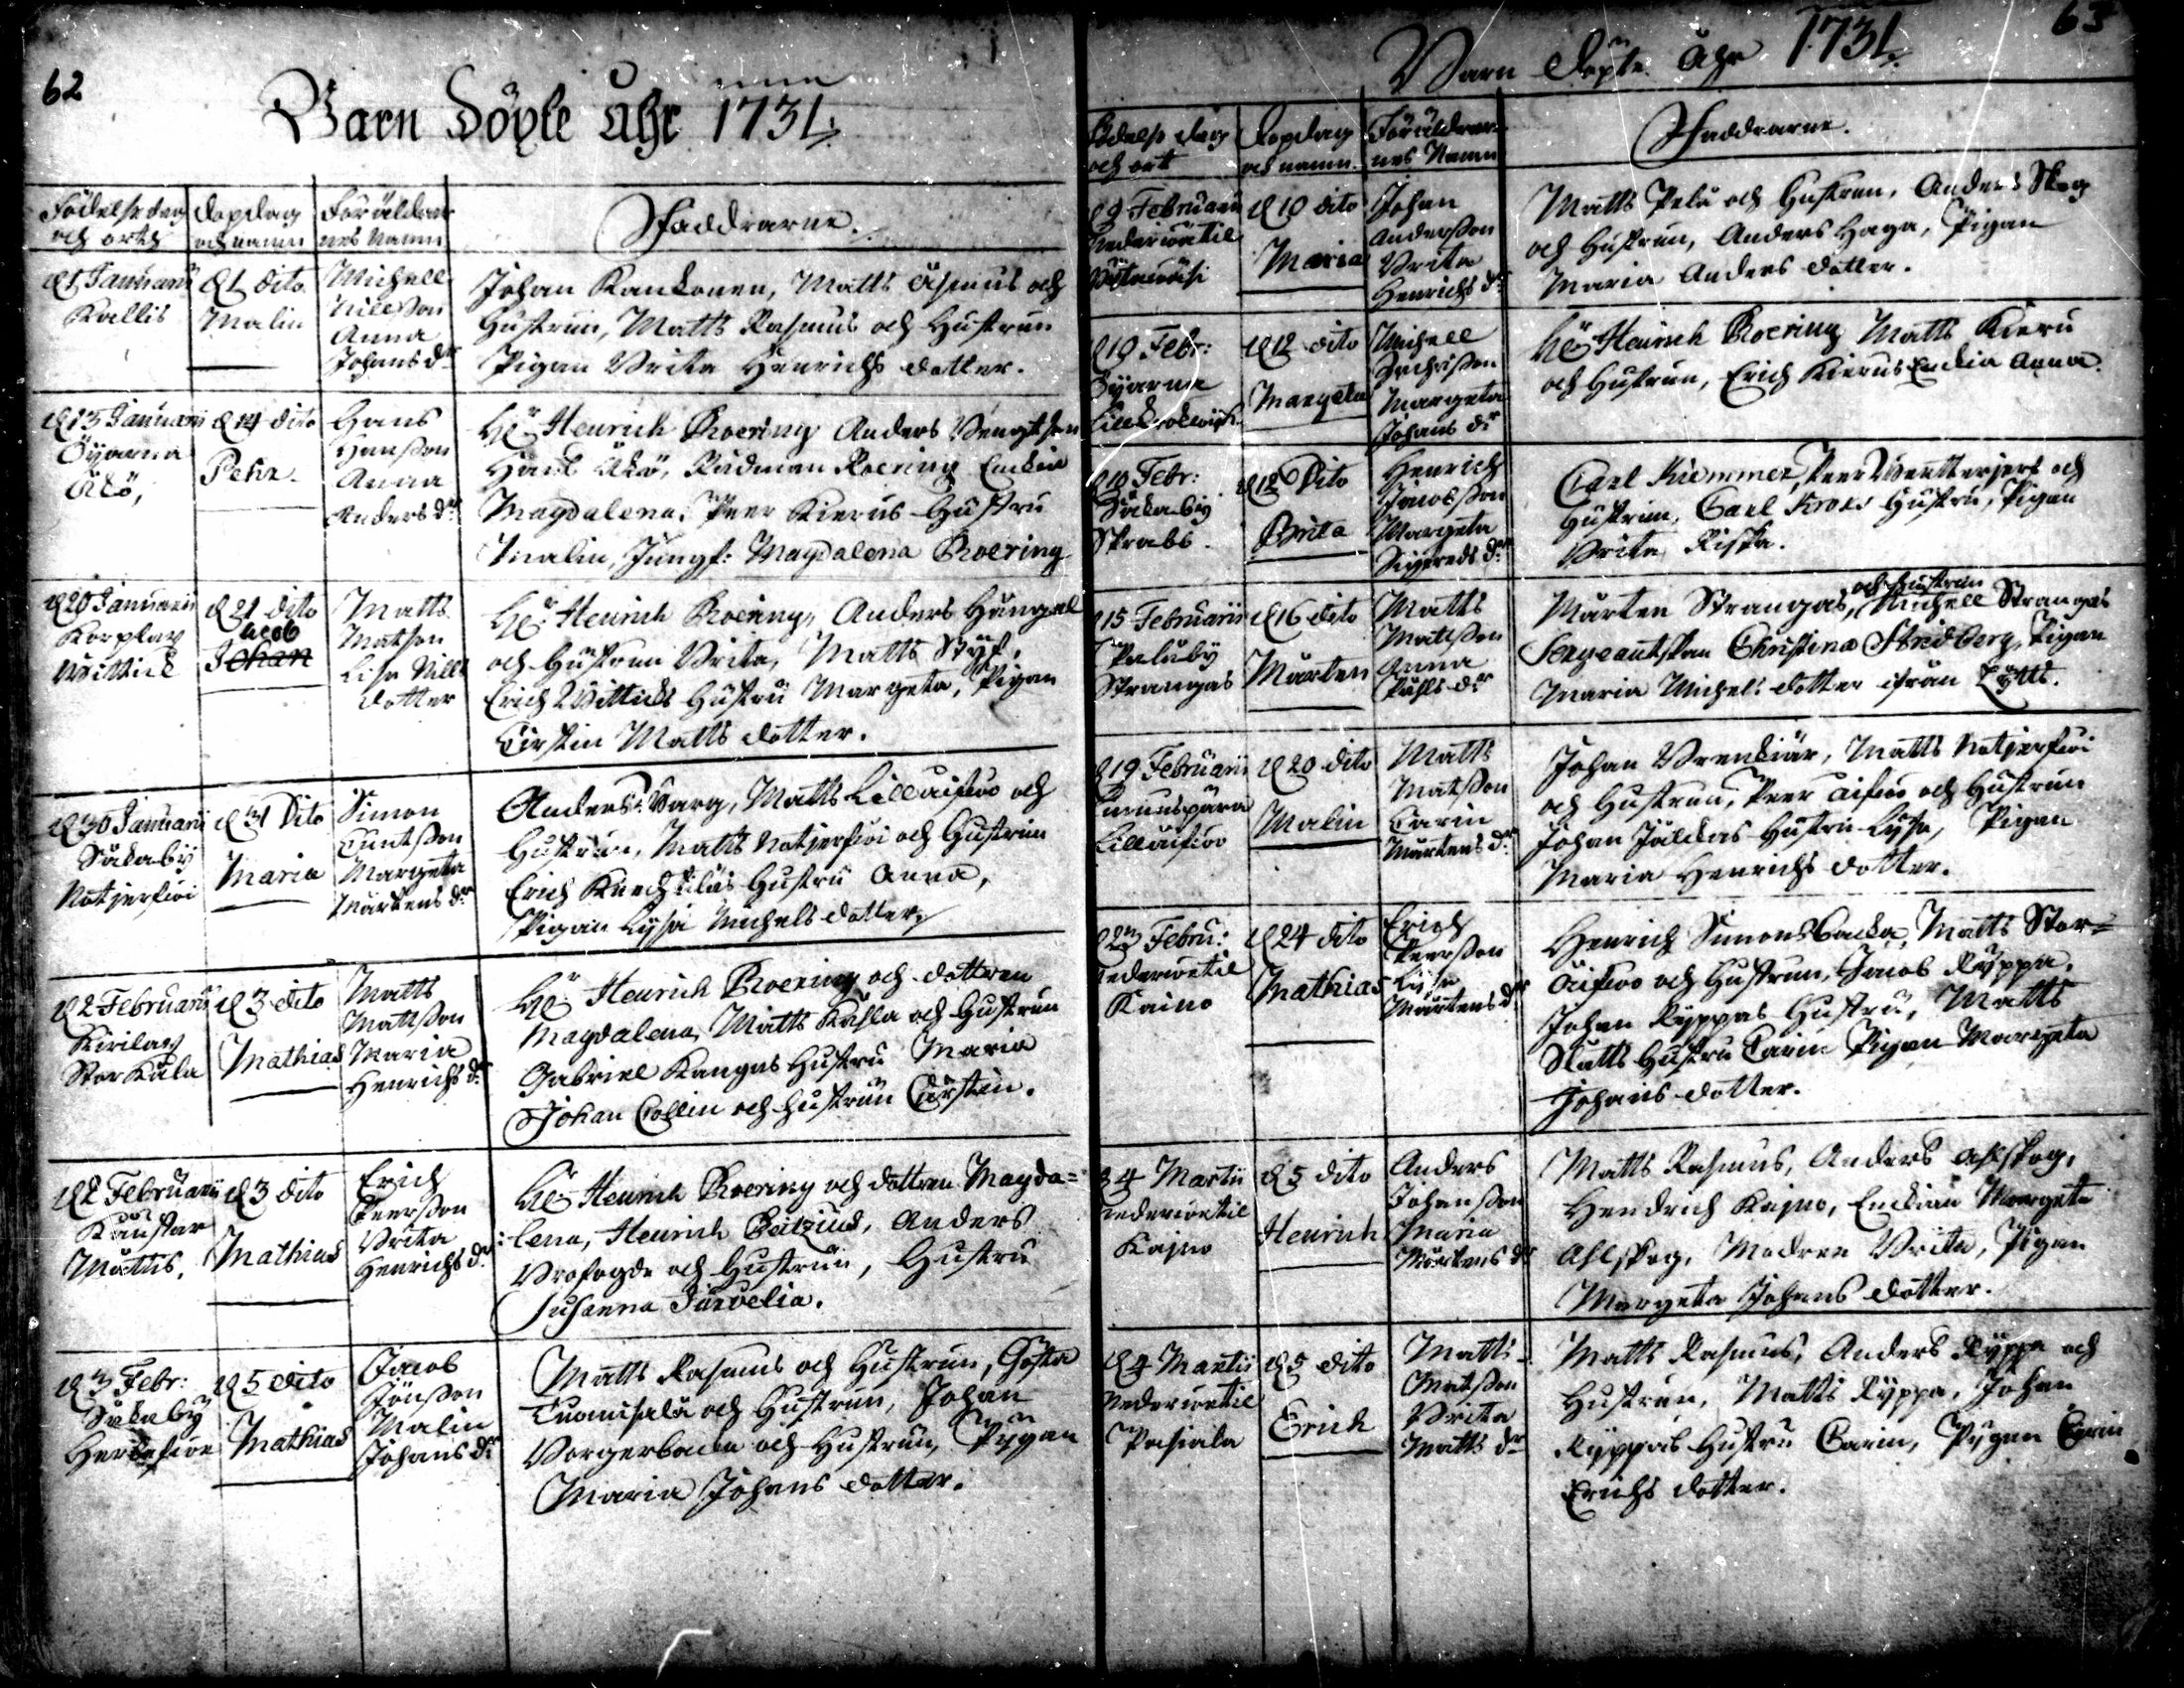 62
Barn Döpte Åhr 1731.
Födelsedag och orth
Dopdag och namn
Föräldrarnes Namn
Faddrarne.
d 1 Januarii
Kallis
d 1 dito
Malin
Michell
Nilsson
Anna
Johans dr
Johan Kankonen, Matts Åsmus och
Hustrun, Matts Rasmus och Hustrun
Pigan Brita Henrichs dotter.
d 13 Januarii
Öyarna
d 14 dito
Pehr
Hans
Hansson
Anna
Anders dr
Hr Henrich Roering Anders Bengtson
Rådman Roering Enkia
Magdalena, Peer Kierus Hustru
Malin, Jungf: Magdalena Roering
d 20 Januarii
Korplax
Wittick
d 21 dito
Jacob
Johan
Matts
Matson
Lisa Nills
dotter
Hr Henrich Roering, Anders
och Hustrun Brita, Matts
Erich Witticks Hustru Margeta, Pigan
Cirstin Matts dotter.
d 30 Januarii
Såkaby
Notjerfwi
d 31 Dito
Maria
Simon
Margeta
Mårtens dr
Anders Warg, Matts Lillaifwo och
Hustrun, Matts Notjerfwi och Hustrun
Erich Knechtilas Hustru Anna,
Pigan Lysa Michels dotter
d 2 Februarii
Kirilax
Storkåla
d 3 dito
Mathias
Matts
Mattsson
Maria
Henrichs dr
Hr Henrich Roering och dottren
Magdalena, Matts Kåhla och Hustrun
Gabriel Kangas Hustru Maria
Johan Collin och hustrun Cirstin.
d 2 Februarii
Knustar
Mattis.
d 3 dito
Mathias
Erich
Peersson
Brita
Henrichs dr
Hr Henrich Roering och dottren Magda=
:lena, Henrich Peitzius, Anders
Brofogde och Hustrun, Hustru
Susanna Jurvelia.
d 3 Febr:
Såkaby
d 5 dito
Mathias
Jacob
Jönsson
Malin
Johans dr
Matts Rasmus och Hustrun, Gösta
Tuomisala och Hustrun, Johan
Borgerbacka och Hustrun, Pygan
Maria Johans dotter.
63
Barn Döpte Åhr 1731.
Födelse dag och ort
Dopdag och namn.
Föräldrarnes Namn
Faddrarne.
d 9 Februarii
Nederwetil
d 10 dito
Maria
Johan
Andersson
Brita
Henrichs dr
Matts Pelå och Hustrun, Anders Skog
och Hustrun, Anders Haga, Pigan
Maria Anders dotter.
d 10 Febr:
Öyarne
d 12 dito
Margeta
Michell
Margeta
Johans dr
Hr Henrich Roering Matts Kieru
och Hustrun, Erich Kierus Enkia Anna.
d 10 Febr:
Såkaby
Skrabb
d 12 Dito
Brita
Henrich
Jacobsson
Margeta
Sigfreds dr
Carl Kiemmer, Peer Wentterjerf och
Hustrun, Carl Kroks Hustru, Pigan
Brita Riska.
d 15 Februarii
Palaby
Strangas
d 16 dito
Mårten
Matts
Mattsson
Anna
Påhls dr
Mårten Strangas, och hustrun Michell Strangas
Sergeantskan Christina Stridberg, Pigan
Maria Michels dotter ifrån Lytts.
d 19 Februarii
Lillaifwo
d 20 dito
Malin
Matts
Matsson
Carin
Mårtens dr
Johan Brenkiär, Matts Notjerfwi
och Hustrun, Peer Aifwo och Hustrun
Johan Jälckas Hustru Lysa, Pigan
Maria Henrichs dotter.
d 23 Febru:
Nederwetil
Kaino
d 24 dito
Mathias
Erich
Peersson
Lysa
Mårtens dr
Henrich Simonsbacka, Matts Stor=
Aifwo och Hustrun, Jacob Ryppa,
Johan Ryppas Hustru, Matts
Slatts Hustru Carin Pigan Margeta
Johans dotter.
d 4 Martii
Nederwetil
Kajno
d 5 dito
Henrich
Anders
Johansson
Maria
Mårtens dr
Matts Rasmus, Anders Ahlskog,
Hendrich Kajno, Enkian Margeta
Ahlskog, Modren Brita, Pigan
Margeta Johans dotter.
d 4 Martii
Nederwetil
Pasiala
d 5 dito
Erich
Matts
Matsson
Brita
Matts dr
Matts Rasmus, Anders Ryppa och
Hustrun, Matts Ryppa, Johan
Ryppas Hustru Carin, Pygan Carin
Erichs dotter.